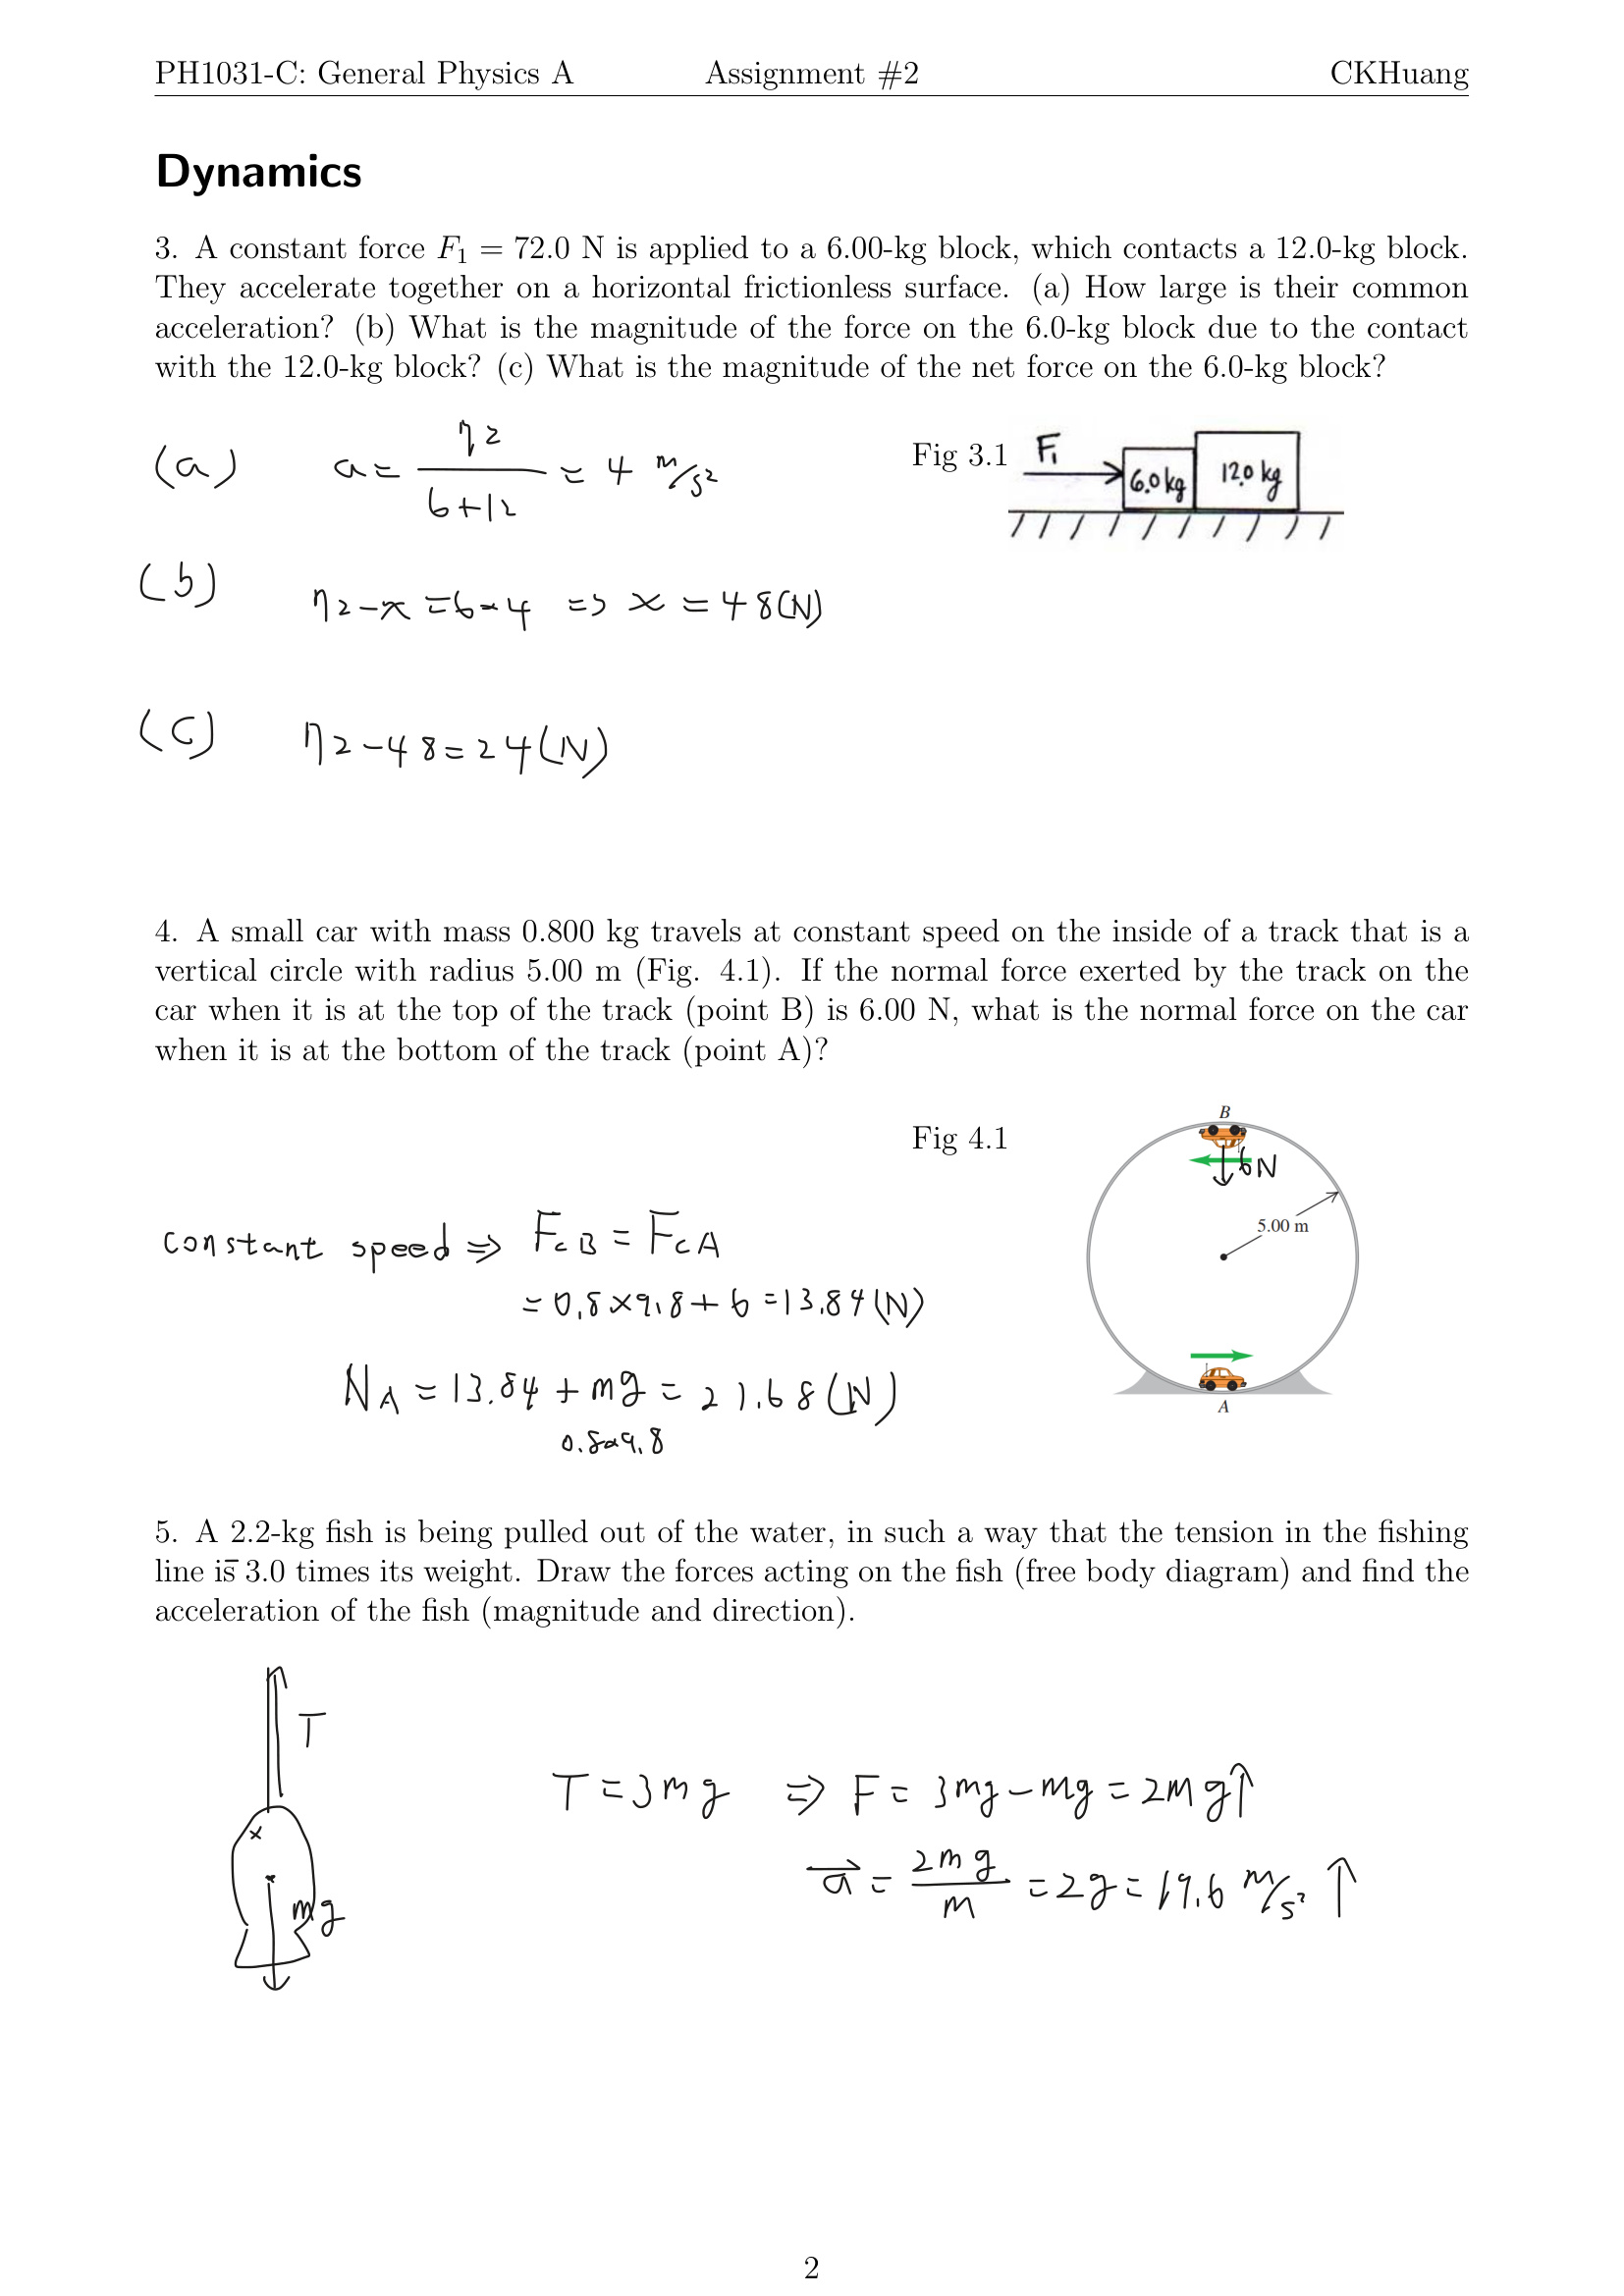 PH1031-C: General Physics A Assignment #2 CKHuang
Dynamics
3. A constant force F₁ = 72.0 N is applied to a 6.00-kg block, which contacts a 12.0-kg block.
They accelerate together on a horizontal frictionless surface. (a) How large is their common
acceleration? (b) What is the magnitude of the force on the 6.0-kg block due to the contact
with the 12.0-kg block? (c) What is the magnitude of the net force on the 6.0-kg block?
(a) a = 72/(6+12) = 4 m/s²
Fig 3.1 F₁ 6.0 kg 12.0 kg
(b) 72-x = 6×4 => x = 48(N)
(c) 72-48=24(N)
4. A small car with mass 0.800 kg travels at constant speed on the inside of a track that is a
vertical circle with radius 5.00 m (Fig. 4.1). If the normal force exerted by the track on the
car when it is at the top of the track (point B) is 6.00 N, what is the normal force on the car
when it is at the bottom of the track (point A)?
Fig 4.1
B
6N
5.00 m
A
constant speed => FcB = FcA
= 0.8×9.8+6=13.84(N)
N_A = 13.84 + mg = 21.68(N)
0.8×9.8
5. A 2.2-kg fish is being pulled out of the water, in such a way that the tension in the fishing
line is 3.0 times its weight. Draw the forces acting on the fish (free body diagram) and find the
acceleration of the fish (magnitude and direction).
T
mg
T=3mg => F = 3mg-mg = 2mg↑
a⃗ = 2mg/m = 2g = 19.6 m/s² ↑
2